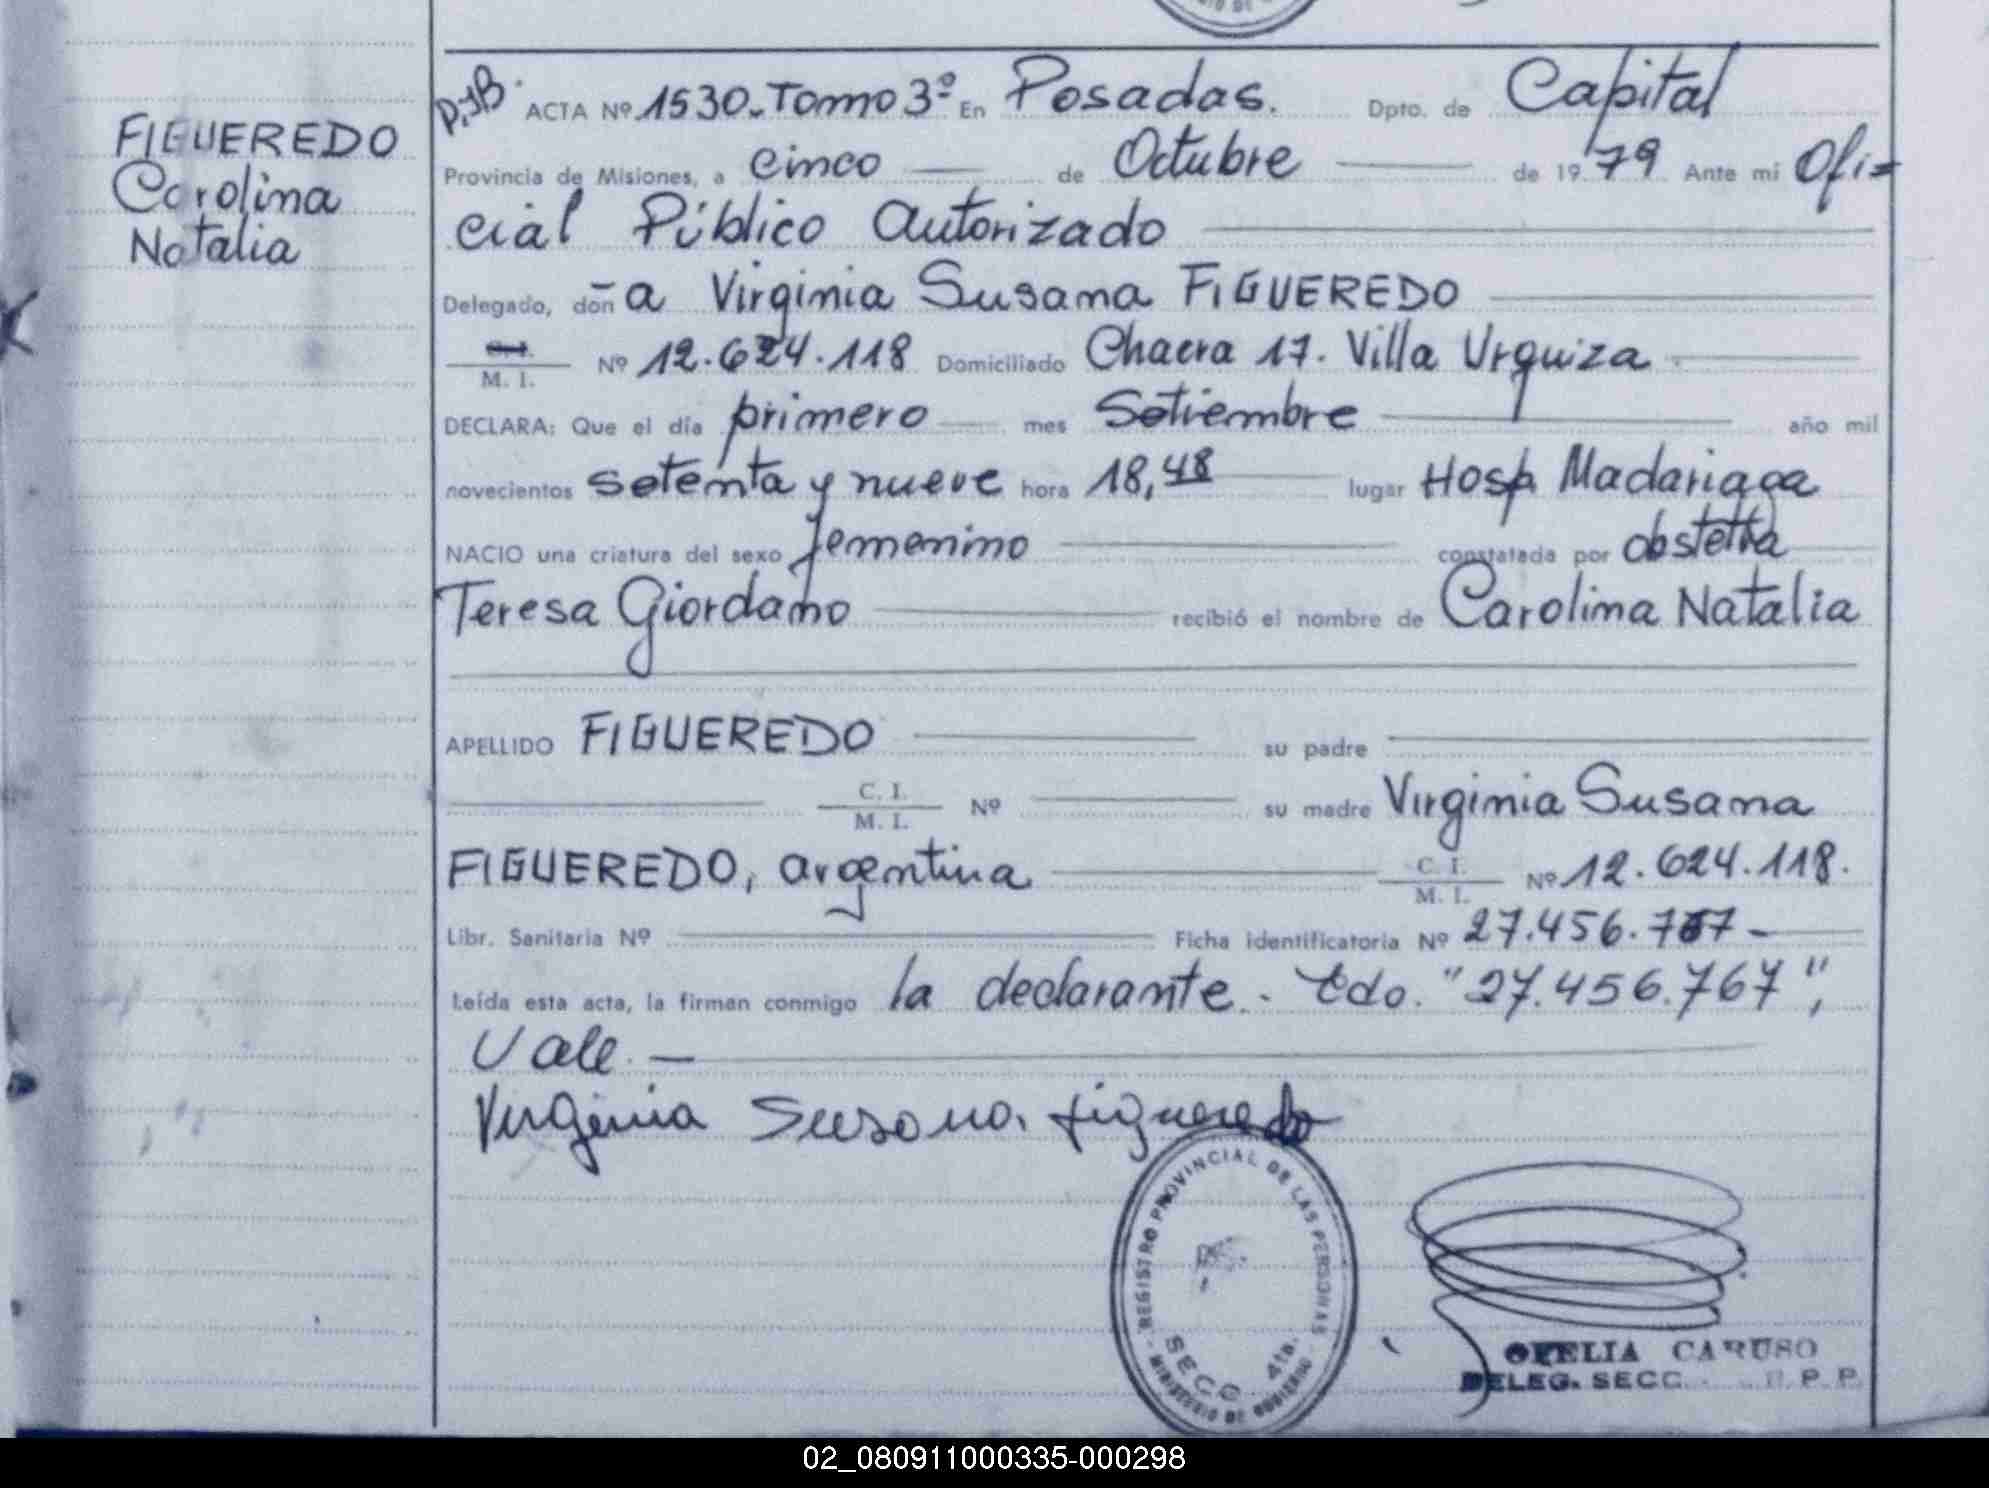 FIGUEREDO
Carolina
Natalia
ACTA Nº 1530. Tomo 3º En Posadas. Dpto. de Capital
Provincia de Misiones, a cinco de Octubre de 1979 Ante mi Ofi=
cial Público Autorizado
Delegado, don-a Virginia Susana FIGUEREDO
M. I. Nº 12.624.118 Domiciliado Chacra 17. Villa Urquiza
DECLARA: Que el día primero mes Setiembre año mil
novecientos setenta y nueve hora 18,48 lugar Hosp. Madariaga
NACIO una criatura del sexo femenino constatada por obstetra
Teresa Giordano recibió el nombre de Carolina Natalia
APELLIDO FIGUEREDO su padre
C. I. / M. I. Nº su madre Virginia Susana
FIGUEREDO, argentina C. I. / M. I. Nº 12.624.118.
Libr. Sanitaria Nº Ficha identificatoria Nº 27.456.767-
Leída esta acta, la firman conmigo la declarante. Edo. "27.456.767",
Vale.-
Virginia Susana Figueredo
REGISTRO PROVINCIAL DE LAS PERSONAS
SECC 4ta.
MINISTERIO DE GOBIERNO
OFELIA CARUSO
DELEG. SECC. R. P. P.
02_080911000335-000298